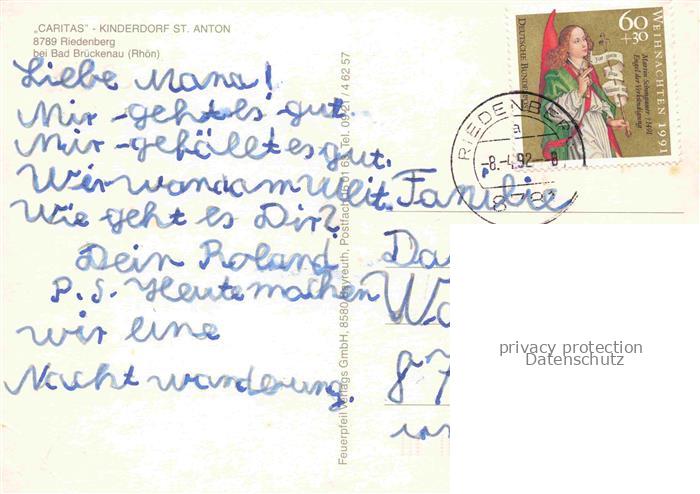 „CARITAS" - KINDERDORF ST. ANTON
8789 Riedenberg
bei Bad Brückenau (Rhön)
Liebe Mama!
Mir geht es gut.
Mir gefällt es gut.
Wir wandern weit.
Wie geht es Dir?
Dein Roland
P. S. Heute machen
wir eine
Nachtwanderung.
Feuerpfeil Verlags GmbH, 8580 Bayreuth, Postfach 16 01 63, Tel. 09 21 / 4 62 57
WEIHNACHTEN 1991
60
+30
DEUTSCHE BUNDESPOST
Martin Schongauer †1491
Engel der Verkündigung
RIEDENBERG
a
-8.-1.92-8
8789
Familie
privacy protection
Datenschutz